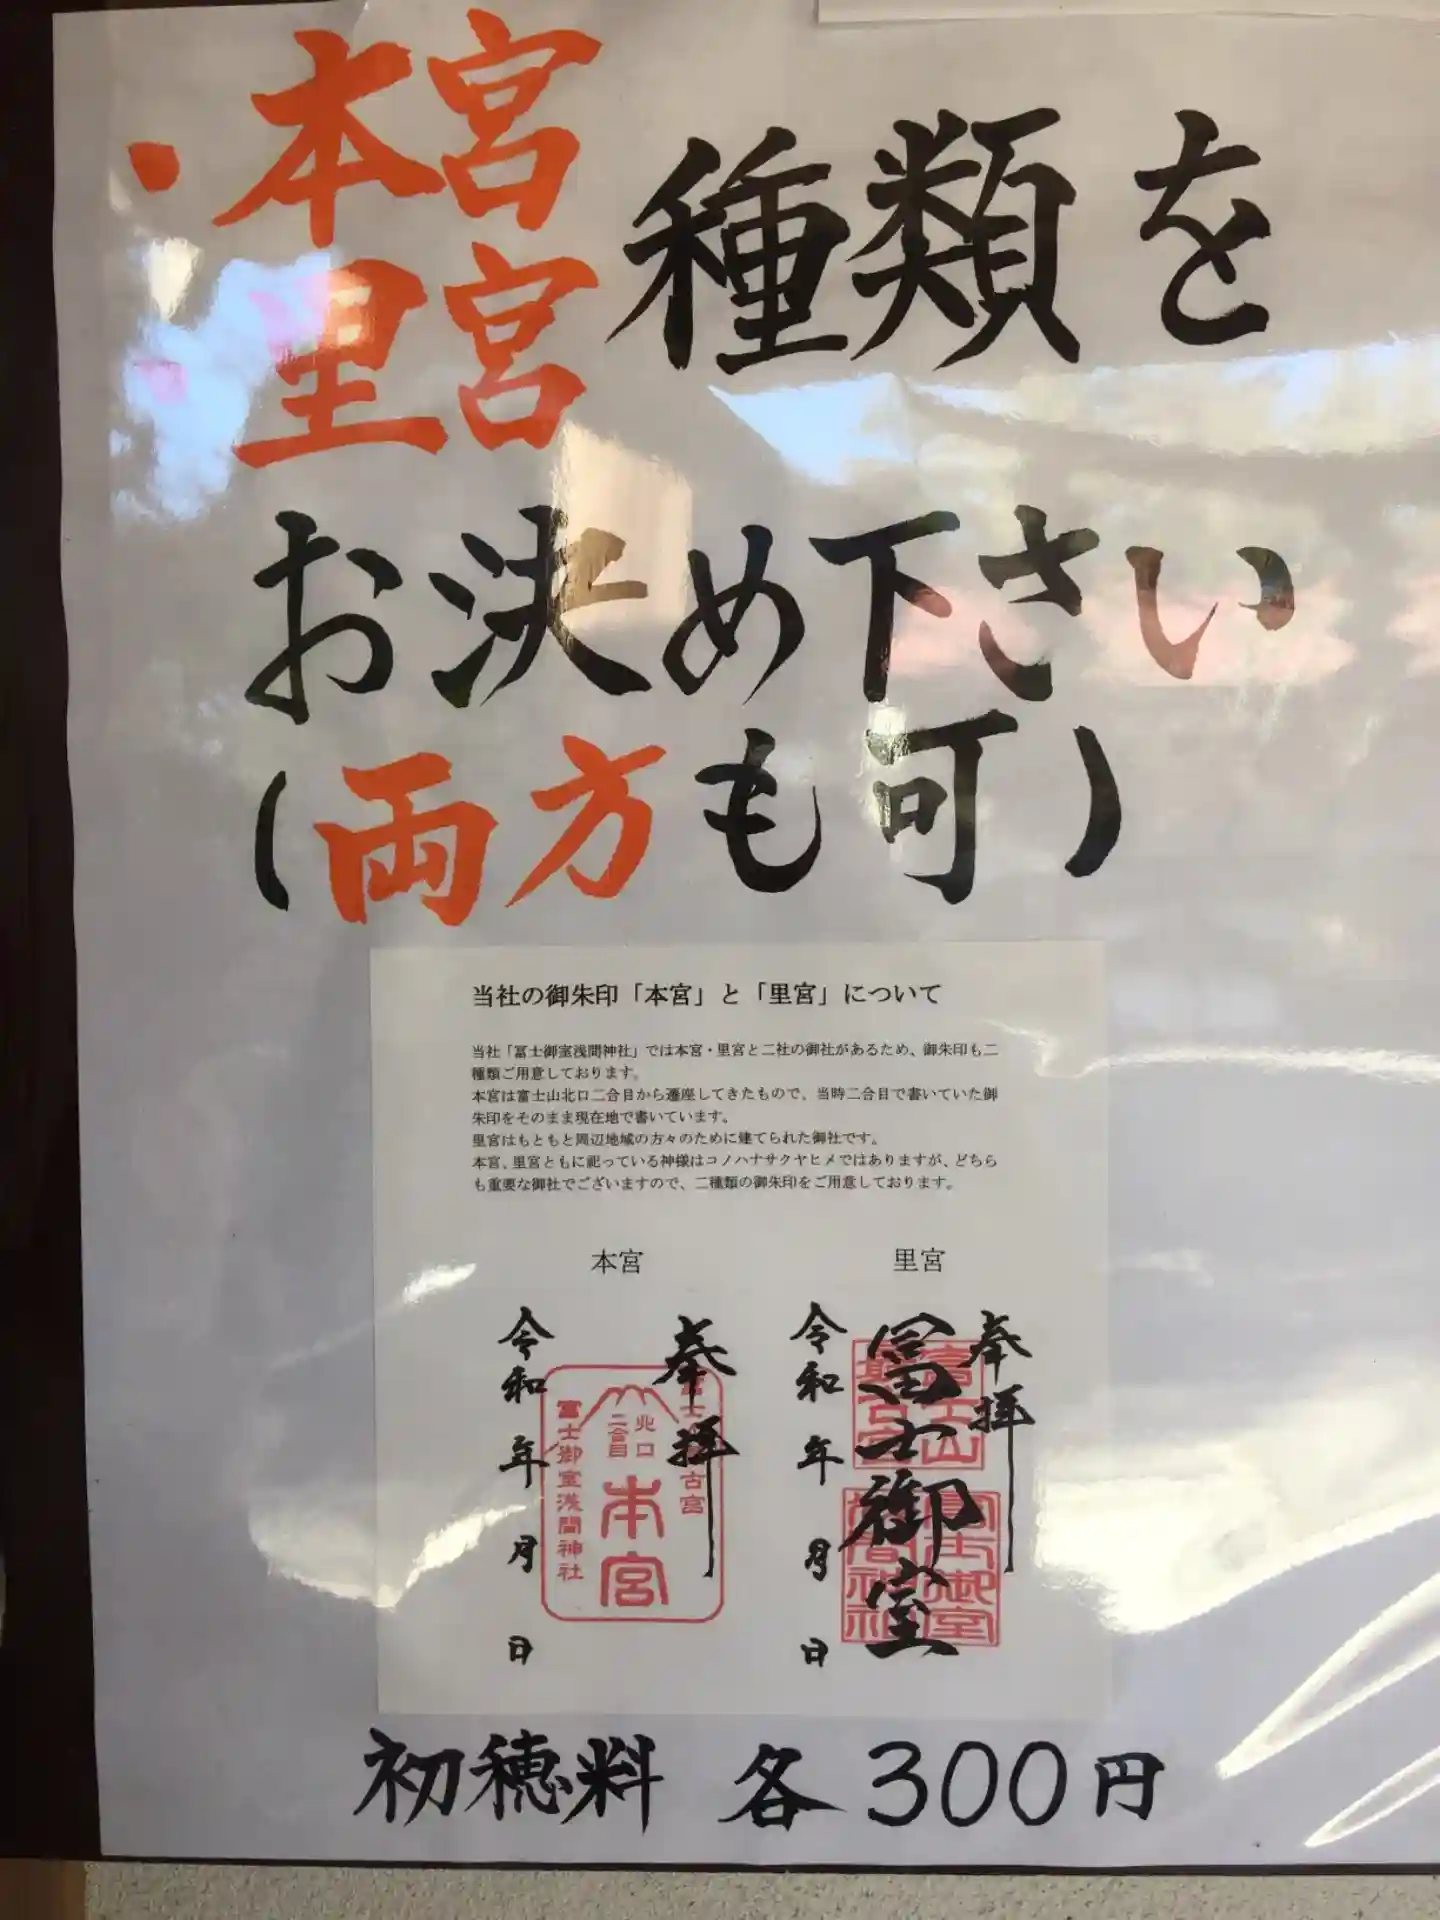 ・本宮
里宮
種類を
お決め下さい
(両方も可)
当社の御朱印「本宮」と「里宮」について
当社「冨士御室浅間神社」では本宮・里宮と二社の御社があるため、御朱印も二
種類ご用意しております。
本宮は富士山北口二合目から遷座してきたもので、当時二合目で書いていた御
朱印をそのまま現在地で書いています。
里宮はもともと周辺地域の方々のために建てられた御社です。
本宮、里宮ともに祀っている神様はコノハナサクヤヒメではありますが、どちら
も重要な御社でございますので、二種類の御朱印をご用意しております。
本宮
奉拝
古宮
北口
二合目
本宮
冨士御室浅間神社
令和 年 月 日
里宮
奉拝
冨士御室
令和 年 月 日
初穂料 各300円